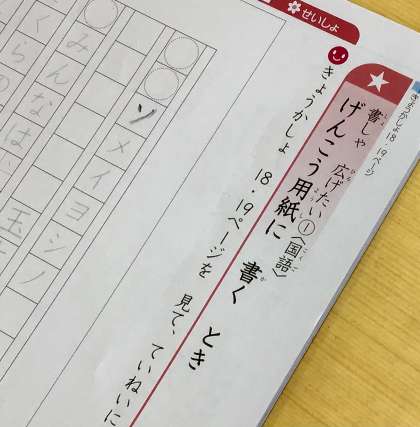 せいしょ
きょうかしょ18・19ページ
書しゃ 広げたい①〈国語〉
げんこう用紙に 書く とき
きょうかしょ 18・19ページを 見て、ていねいに
ソメイヨシノ
みんなは
玉
くらの